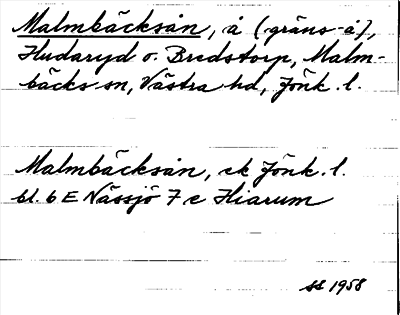 Malmbäcksån, å (gräns-å),
Hudaryd o. Bredstorp, Malm-
bäcks sn, Västra hd, Jönk. l.
Malmbäcksån, ek Jönk. l.
bl. 6 E Nässjö 7 c Hiarum
SS 1958